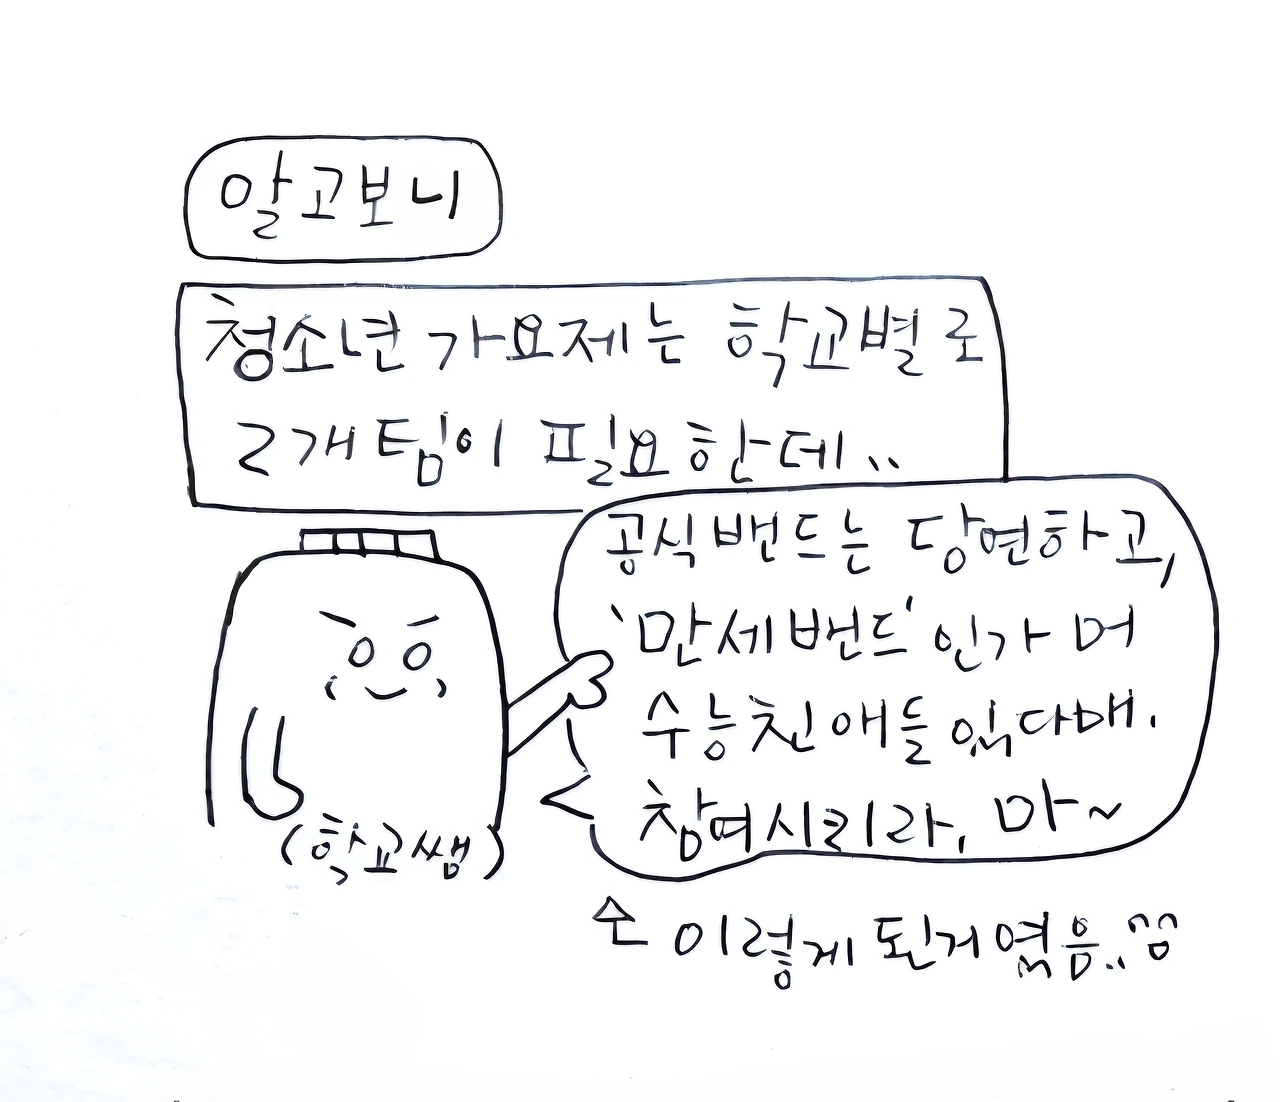 알고보니
청소년 가요제는 학교별로
2개 팀이 필요한데..
공식밴드는 당연하고,
'만세밴드'인가 머
수능친 애들 있다매.
참여시키라, 마~
(학교쌤)
이렇게 된거였음..